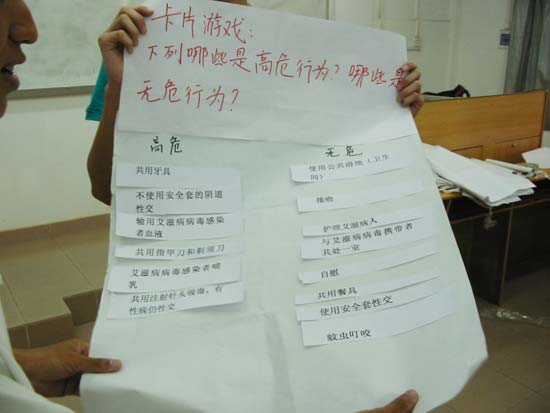 卡片游戏：
下列哪些是高危行为？哪些是
无危行为？
高危
无危
共用牙具
不使用安全套的阴道
性交
输用艾滋病病毒感染
者血液
共用指甲刀和剃须刀
艾滋病病毒感染者哺
乳
共用注射针头吸毒，有
性病仍性交
使用公共浴池（卫生
间）
接吻
护理艾滋病人
与艾滋病病毒携带者
共处一室
自慰
共用餐具
使用安全套性交
蚊虫叮咬